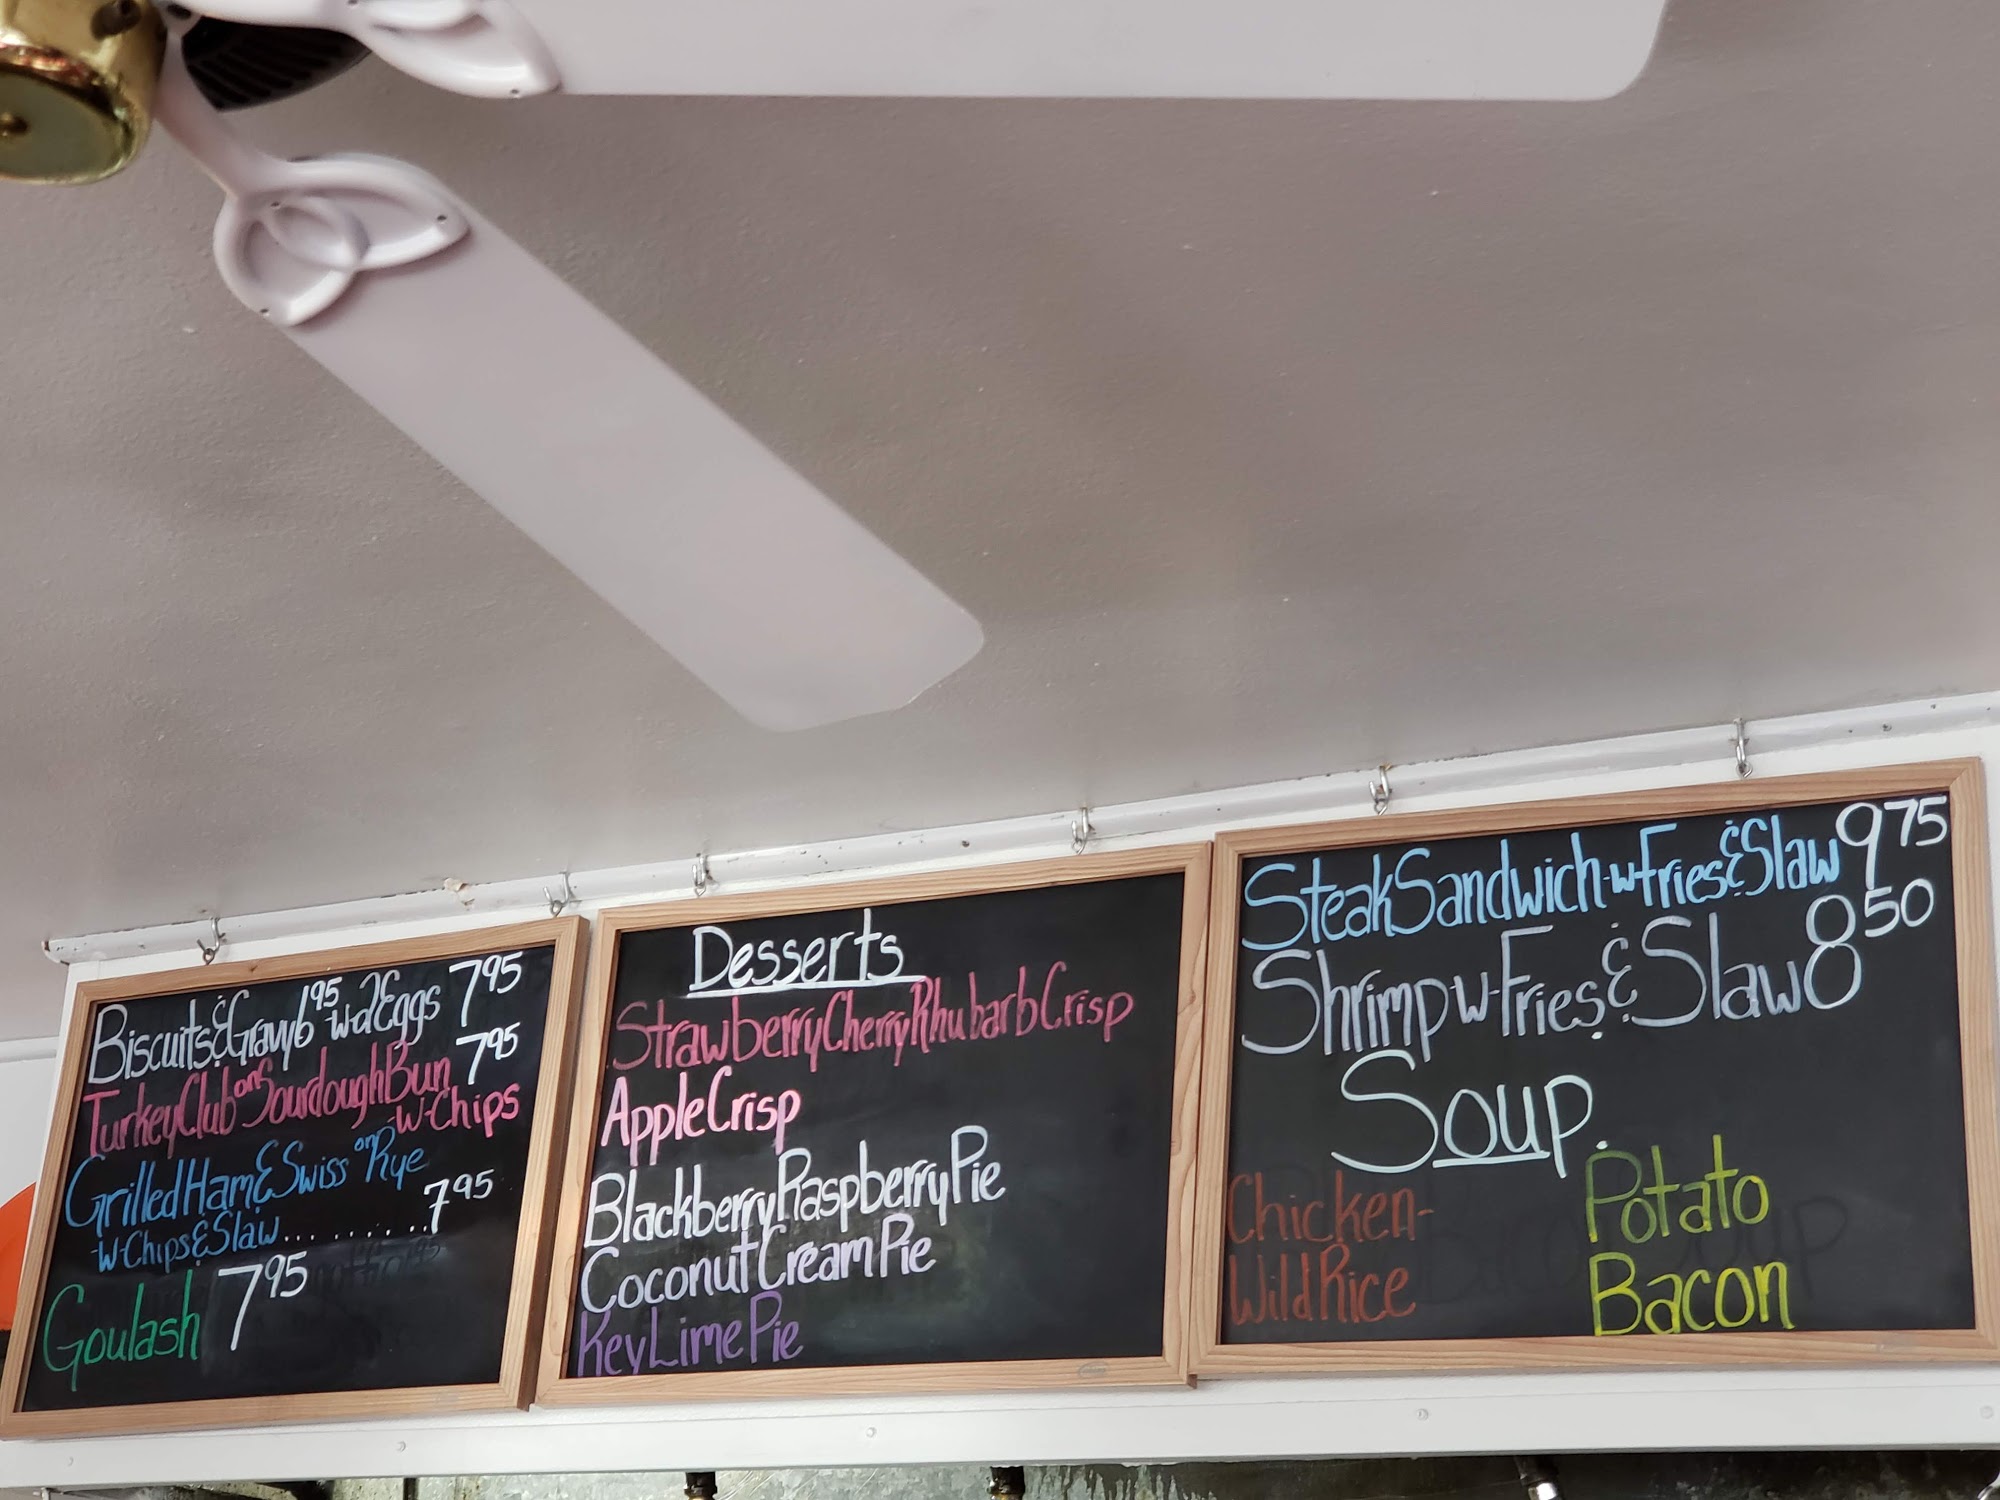 Biscuits & Gravy 6 95 -w-2 Eggs 7 95
Turkey Club on Sourdough Bun 7 95
-w-Chips
Grilled Ham & Swiss on Rye
-w-Chips & Slaw ........ 7 95
Goulash 7 95
Desserts
Strawberry Cherry Rhubarb Crisp
Apple Crisp
Blackberry Raspberry Pie
Coconut Cream Pie
Key Lime Pie
Steak Sandwich -w- Fries & Slaw 9 75
Shrimp -w- Fries & Slaw 8 50
Soup.
Chicken-
Wild Rice
Potato
Bacon